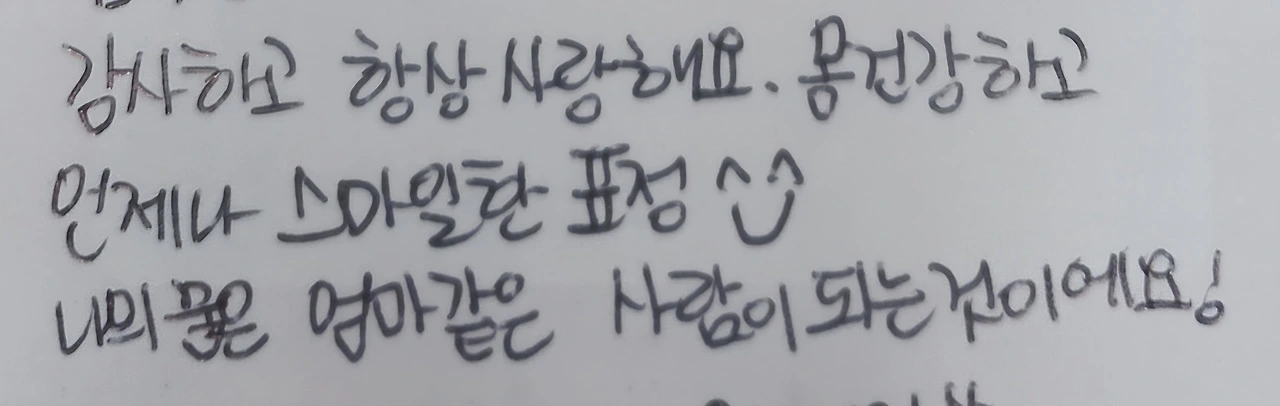 감사하고 항상 사랑해요. 몸건강하고
언제나 스마일한 표정 ^^
나의 꿈은 엄마같은 사람이 되는것이에요!